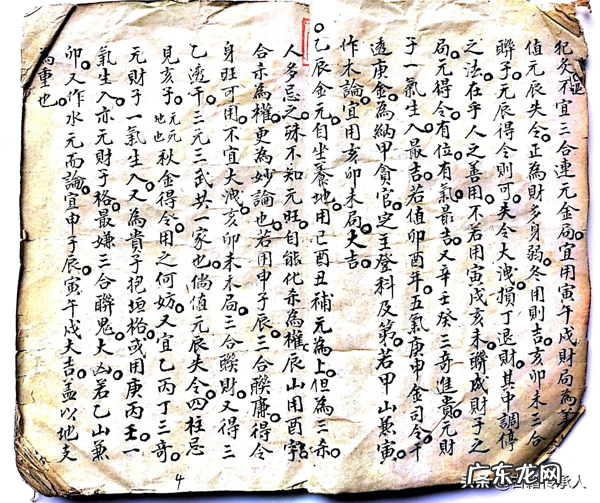 犯灸不宜三合連元金局宜用寅午戌財局為
值元辰失令正為財多身弱冬用則吉亥卯未三合
聯子元辰得令則可失令大洩損丁退財其中調停
之法在乎人之善用不若用寅戌亥未聯成財子之
局元得令有位有氣最吉又辛壬癸三奇進貴元財
子一氣生入最吉若值卯酉年五氣庚申金司令干
遠庚金為納甲貪官定主登科及第若甲山兼寅
作木論宜用亥卯未局大吉
乙辰金元自坐養地用己酉丑補元為上但為三杀
人多忌之殊不知元旺自能化杀為權辰山用酉字
合杀為權更為妙論也若用申子辰三合聯廉得令
身旺可用不宜大洩亥卯未未局三合聯財又得三
乙遁干三元三武共一家也倘值元辰失令四柱忌
見亥子元死地也秋金得令用之何妨又宜乙丙丁三奇
元財子一氣生入又為貴子抱垣格或用庚丙壬一
氣生入亦元財子格最嫌三合聯鬼大凶若乙山兼
卯又作水元而論宜申子辰寅午戌大吉盖以地支
為重也
4
头条
广东龙网